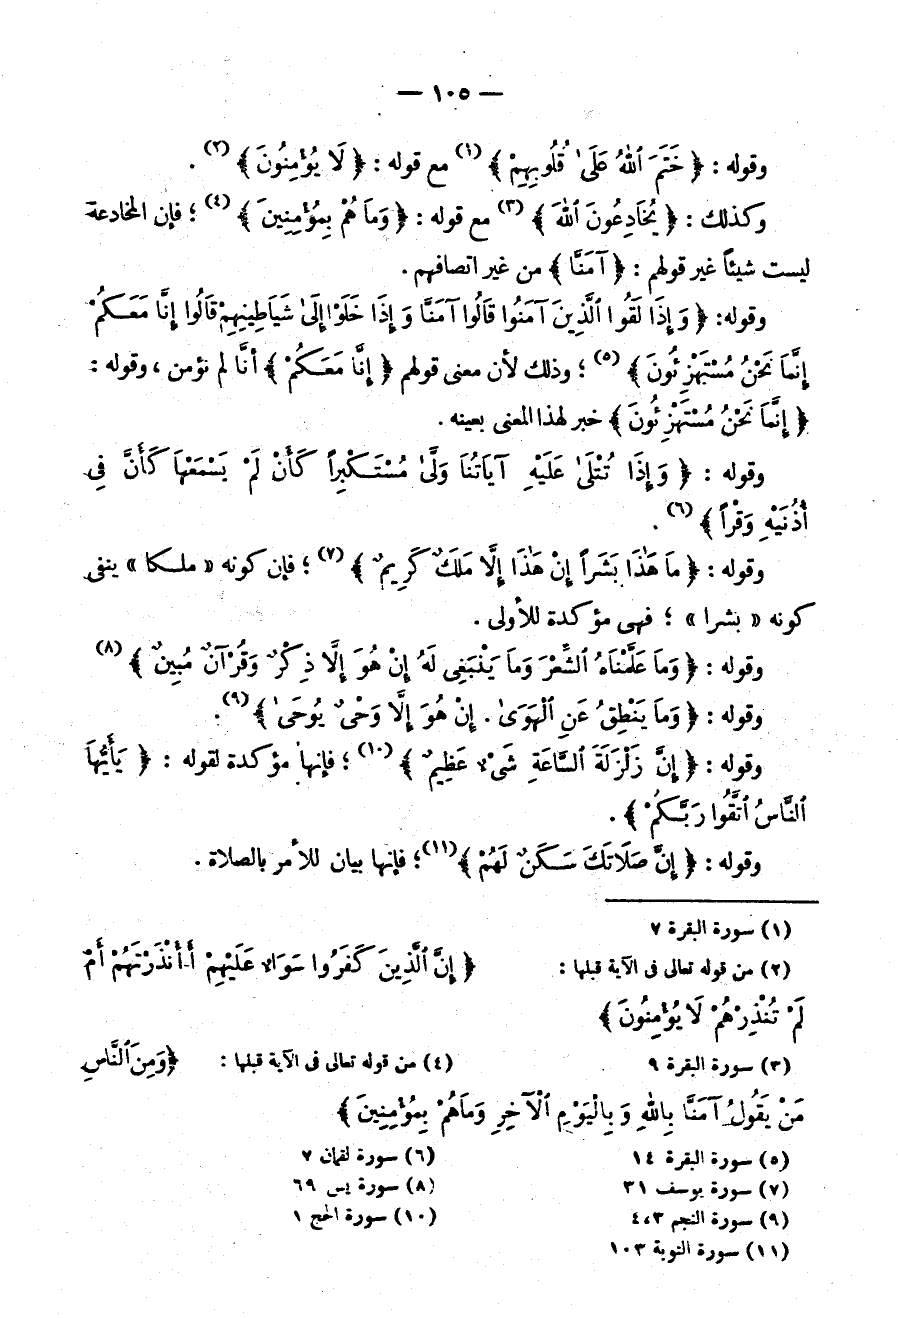 — ١٠٥ —
وقوله : ﴿ خَتَمَ ٱللّٰهُ عَلَىٰ قُلُوبِهِمْ ﴾ (١) مع قوله : ﴿ لَا يُؤْمِنُونَ ﴾ (٢) .
وكذلك : ﴿ يُخَادِعُونَ ٱللّٰهَ ﴾ (٣) مع قوله : ﴿ وَمَا هُمْ بِمُؤْمِنِينَ ﴾ (٤) ؛ فإن المخادعة
ليست شيئاً غير قولهم : ﴿ آمَنَّا ﴾ من غير اتصافهم .
وقوله: ﴿ وَإِذَا لَقُوا ٱلَّذِينَ آمَنُوا قَالُوا آمَنَّا وَإِذَا خَلَوْا إِلَىٰ شَيَاطِينِهِمْ قَالُوا إِنَّا مَعَكُمْ
إِنَّمَا نَحْنُ مُسْتَهْزِئُونَ ﴾ (٥) ؛ وذلك لأن معنى قولهم ﴿ إِنَّا مَعَكُمْ ﴾ أنَّا لم نؤمن ، وقوله :
﴿ إِنَّمَا نَحْنُ مُسْتَهْزِئُونَ ﴾ خبر لهذا المعنى بعينه .
وقوله : ﴿ وَإِذَا تُتْلَىٰ عَلَيْهِ آيَاتُنَا وَلَّىٰ مُسْتَكْبِراً كَأَنْ لَمْ يَسْمَعْهَا كَأَنَّ فِى
أُذُنَيْهِ وَقْراً ﴾ (٦) .
وقوله : ﴿ مَا هَٰذَا بَشَراً إِنْ هَٰذَا إِلَّا مَلَكٌ كَرِيمٌ ﴾ (٧) ؛ فإن كونه « ملكا » ينفى
كونه « بشرا » ؛ فهى مؤكدة للأولى .
وقوله : ﴿ وَمَا عَلَّمْنَاهُ ٱلشِّعْرَ وَمَا يَنْبَغِى لَهُ إِنْ هُوَ إِلَّا ذِكْرٌ وَقُرْآنٌ مُبِينٌ ﴾ (٨)
وقوله : ﴿ وَمَا يَنْطِقُ عَنِ ٱلْهَوَىٰ . إِنْ هُوَ إِلَّا وَحْىٌ يُوحَىٰ ﴾ (٩) .
وقوله : ﴿ إِنَّ زَلْزَلَةَ ٱلسَّاعَةِ شَىْءٌ عَظِيمٌ ﴾ (١٠) ؛ فإنها مؤكدة لقوله : ﴿ يَأَيُّهَا
ٱلنَّاسُ ٱتَّقُوا رَبَّكُمْ ﴾ .
وقوله : ﴿ إِنَّ صَلَاتَكَ سَكَنٌ لَهُمْ ﴾ (١١) ؛ فإنها بيان للأمر بالصلاة .
(١) سورة البقرة ٧
(٢) من قوله تعالى فى الآية قبلها : ﴿ إِنَّ ٱلَّذِينَ كَفَرُوا سَوَاءٌ عَلَيْهِمْ أَأَنْذَرْتَهُمْ أَمْ
لَمْ تُنْذِرْهُمْ لَا يُؤْمِنُونَ ﴾
(٣) سورة البقرة ٩ (٤) من قوله تعالى فى الآية قبلها : ﴿ وَمِنَ ٱلنَّاسِ
مَنْ يَقُولُ آمَنَّا بِاللّٰهِ وَبِالْيَوْمِ ٱلْآخِرِ وَمَاهُمْ بِمُؤْمِنِينَ ﴾
(٥) سورة البقرة ١٤ (٦) سورة لقمان ٧
(٧) سورة يوسف ٣١ (٨) سورة يس ٦٩
(٩) سورة النجم ٣،٤ (١٠) سورة الحج ١
(١١) سورة التوبة ١٠٣